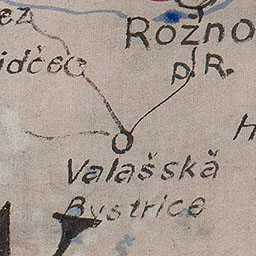 ez
Rožno
idčec
p. R.
H
Valašská
Bystrice